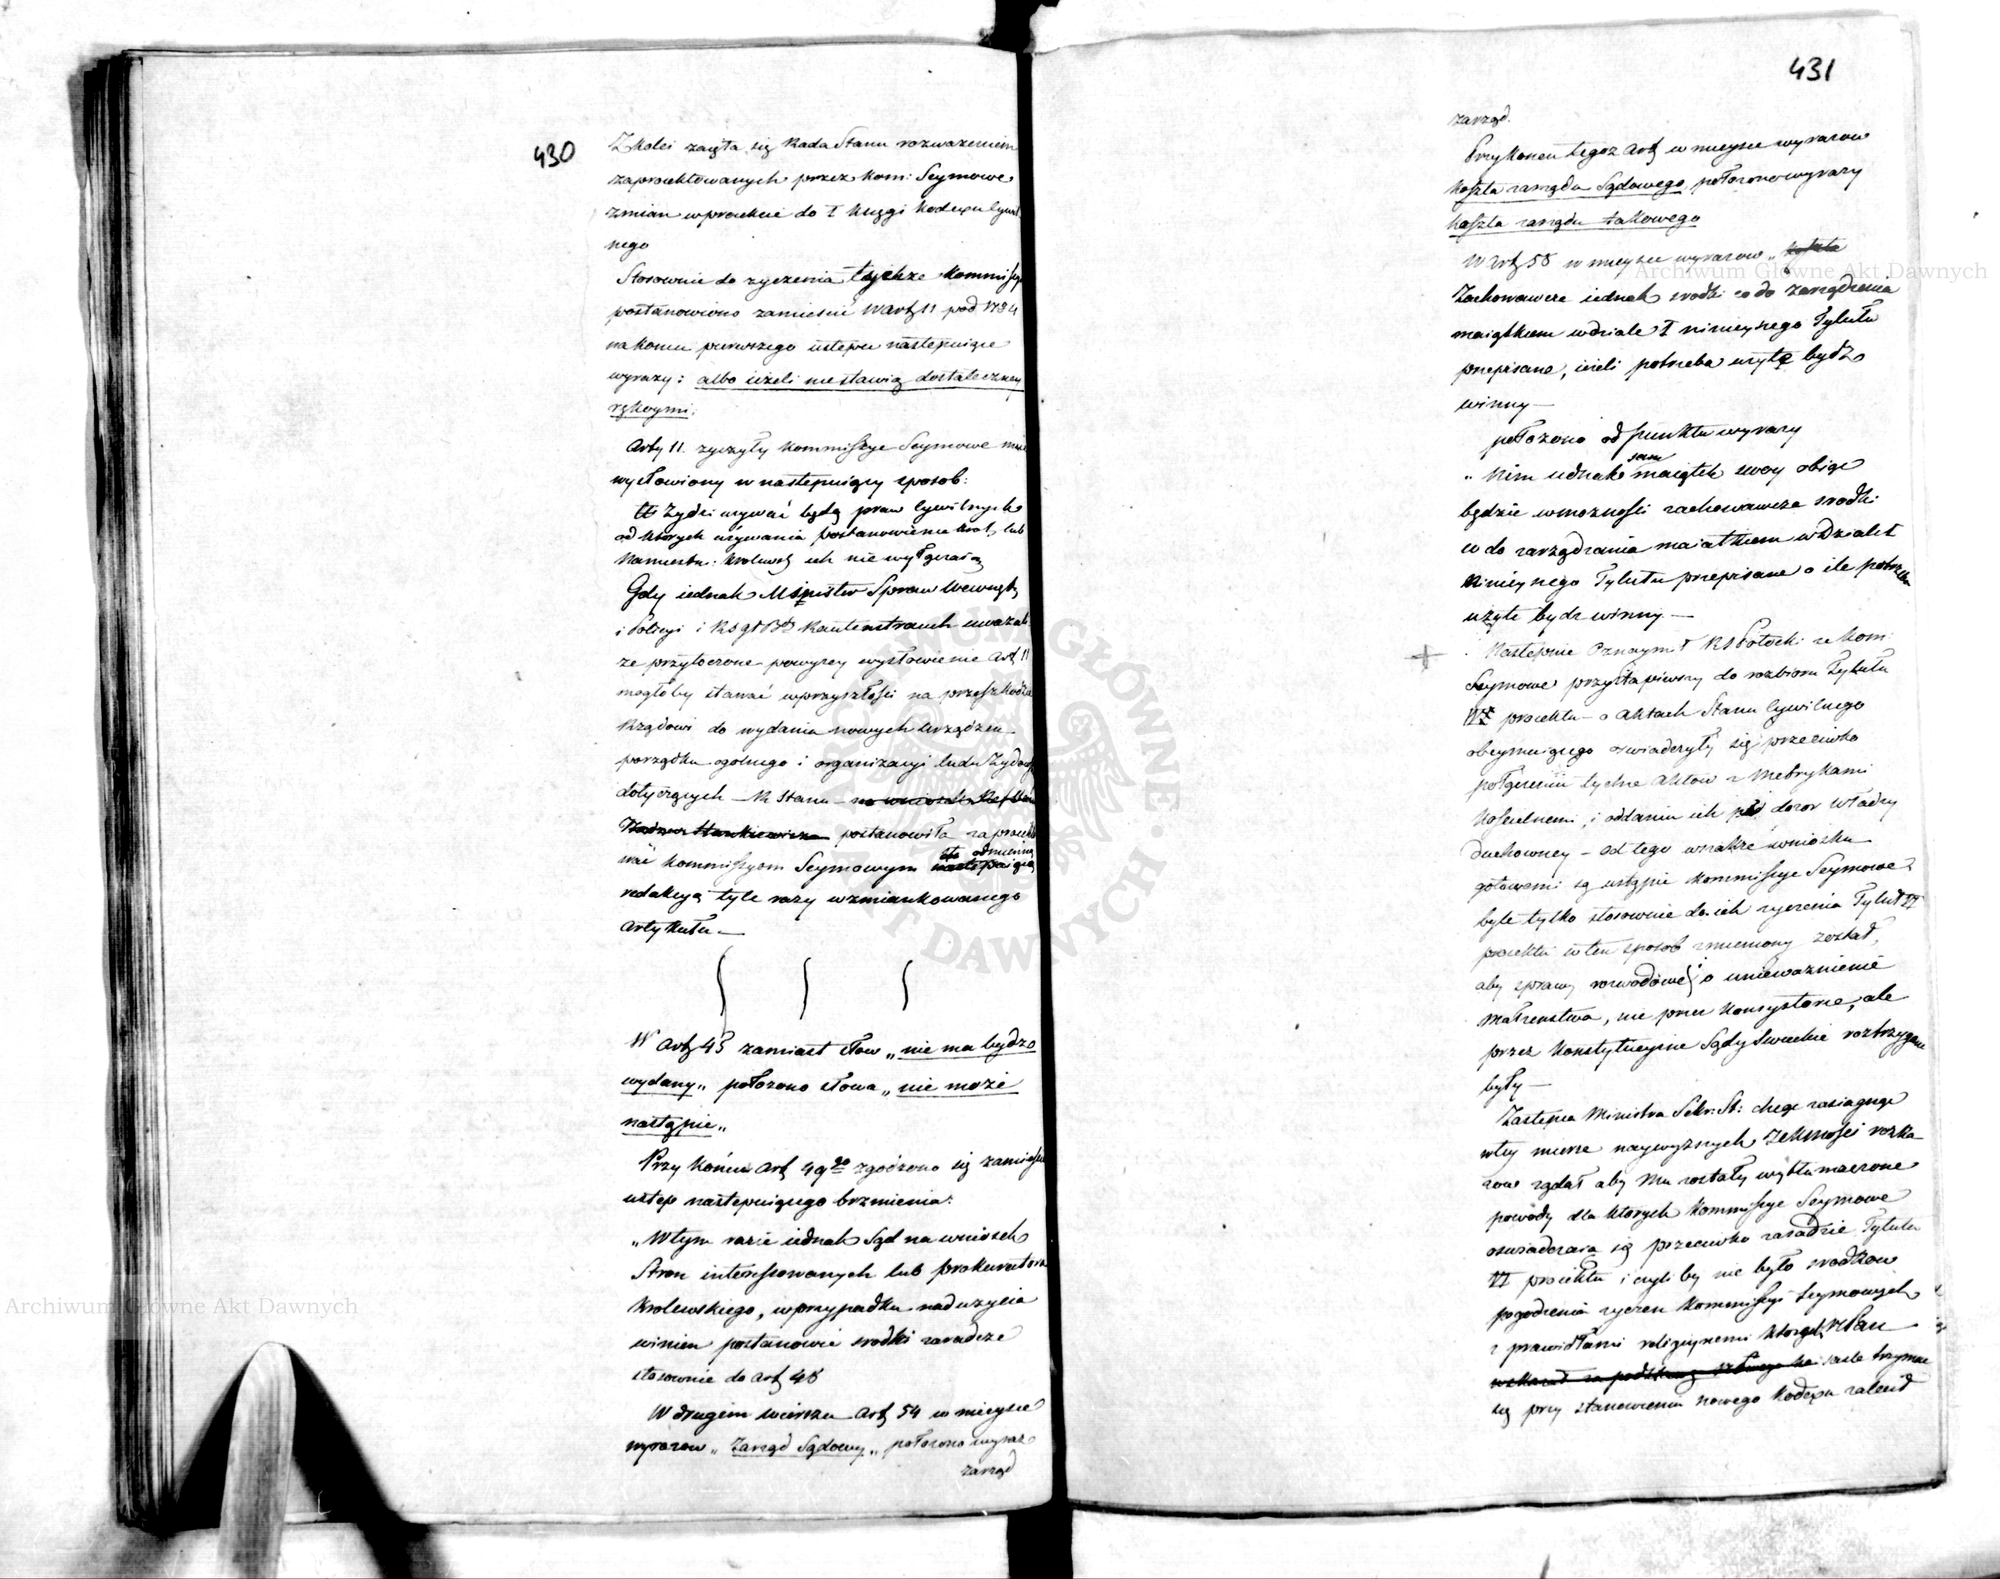 430
Z kolei zaięła się Rada Stanu rozważeniem
zaproiektowanych przez Kom: Seymowe
zmian w proiekcie do I Księgi Kodexu Cywil
nego
Stosownie do życzenia tychże Kommissyi
postanowiono zamieścić w Art 11 pod N° 4
na końcu pierwszego ustępu następuiące
wyrazy: albo ieżeli nie stawią dostateczney
rękoymi.
Arty 11. życzyły Kommissye Seymowe mieć
wysłowiony w następuiący sposob:
Żydzi używać będą praw Cywilnych
od których używania postanowienia Krol. lub
Namiestn: Krolewsk ich nie wyłączaią
Gdy iednak Minister Spraw Wewnętrz
i Policyi i Kautenstrauch uważali
że przytoczone powyżey wysłowienie Art 11
mogłoby stawać w przyszłości na przeszkodzie
Rządowi do wydania nowych urządzeń
porządku ogolnego i organizacyi ludu Żydow
dotyczących – R. Stanu – na wniosek Ref
Radzcy Stankiewicza postanowiła zaproiekto
wać Kommissyom Seymowym odmienną
następuiącą
redakcyą tyle razy wzmiankowanego
Artykułu. —
W Art 45 zamiast słow „nie ma bydź
wydany„ położono słowa „nie może
nastąpić„
Przy końcu Art 49go zgodzono się zamieścić
ustęp następuiącego brzmienia:
„W tym razie iednak Sąd na wniosek
Stron interessowanych lub prokuratora
Krolewskiego, w przypadku nadużycia
winien postanowić srodki zaradcze
stosownie do Art 48
W drugim wierszu Art 54 w mieysce
wyrazow „Zarząd Sądowy„ położono wyraz
zarząd
431
zarząd.
Przy koncu tegoż Art w mieysce wyrazow
Koszta zarządu Sądowego położono wyrazy
Koszta zarządu takowego
W Art 58 w mieysce wyrazow „ Koszta
Zachowawcze iednak srodki co do zarządzenia
maiątkiem w dziale I ninieyszego Tytułu
przepisane, ieżeli potrzeba użyte bydź
winny —
położono od punktu wyrazy
„ Nim iednak sam maiątek swoy obięte
będzie w możności zachowawcze srodki
co do zarządzania maiatkiem w Dziale I
Ninieyszego Tytułu przepisane o ile potrzeba
użyte bydz winny. —
Następnie Oznaymił RS Potocki że Kom:
Seymowe przystąpiwszy do rozbioru Tytułu
IV proiektu – o Aktach Stanu Cywilnego
obeymuiącego oswiadczyły się przeciwko
połączeniu tychże Aktow z Metrykami
Koscielnemi, i oddaniu ich pod dozor Władzy
Duchowney – od tego wszakże wniosku
gotowemi są ustąpić Kommissye Seymowe
byle tylko stosownie do ich życzenia Tytuł VI
proiektu w ten sposob zmieniony został,
aby sprawy rozwodowe i o unieważnienie
Małżenstwa, nie przez Konsystorze, ale
przez Konstytucyine Sądy Swieckie roztrzygane
były —
Zastępca Ministra Sekr: St: chcąc zasiągnąć
w tey mierze naywyższych JKMości rozka
zow żądał aby Mu zostały wytłumaczone
powody dla ktorych Kommissye Seymowe
oswiadczaią się przeciwko zasadzie Tytułu
VI proiektu i czyli by nie było srodkow
pogodzenia życzen Kommissyi Seymowych
z prawidłami religiynemi ktorych NPan
scisle trzymać
się przy stanowieniu nowego Kodexu zalecił